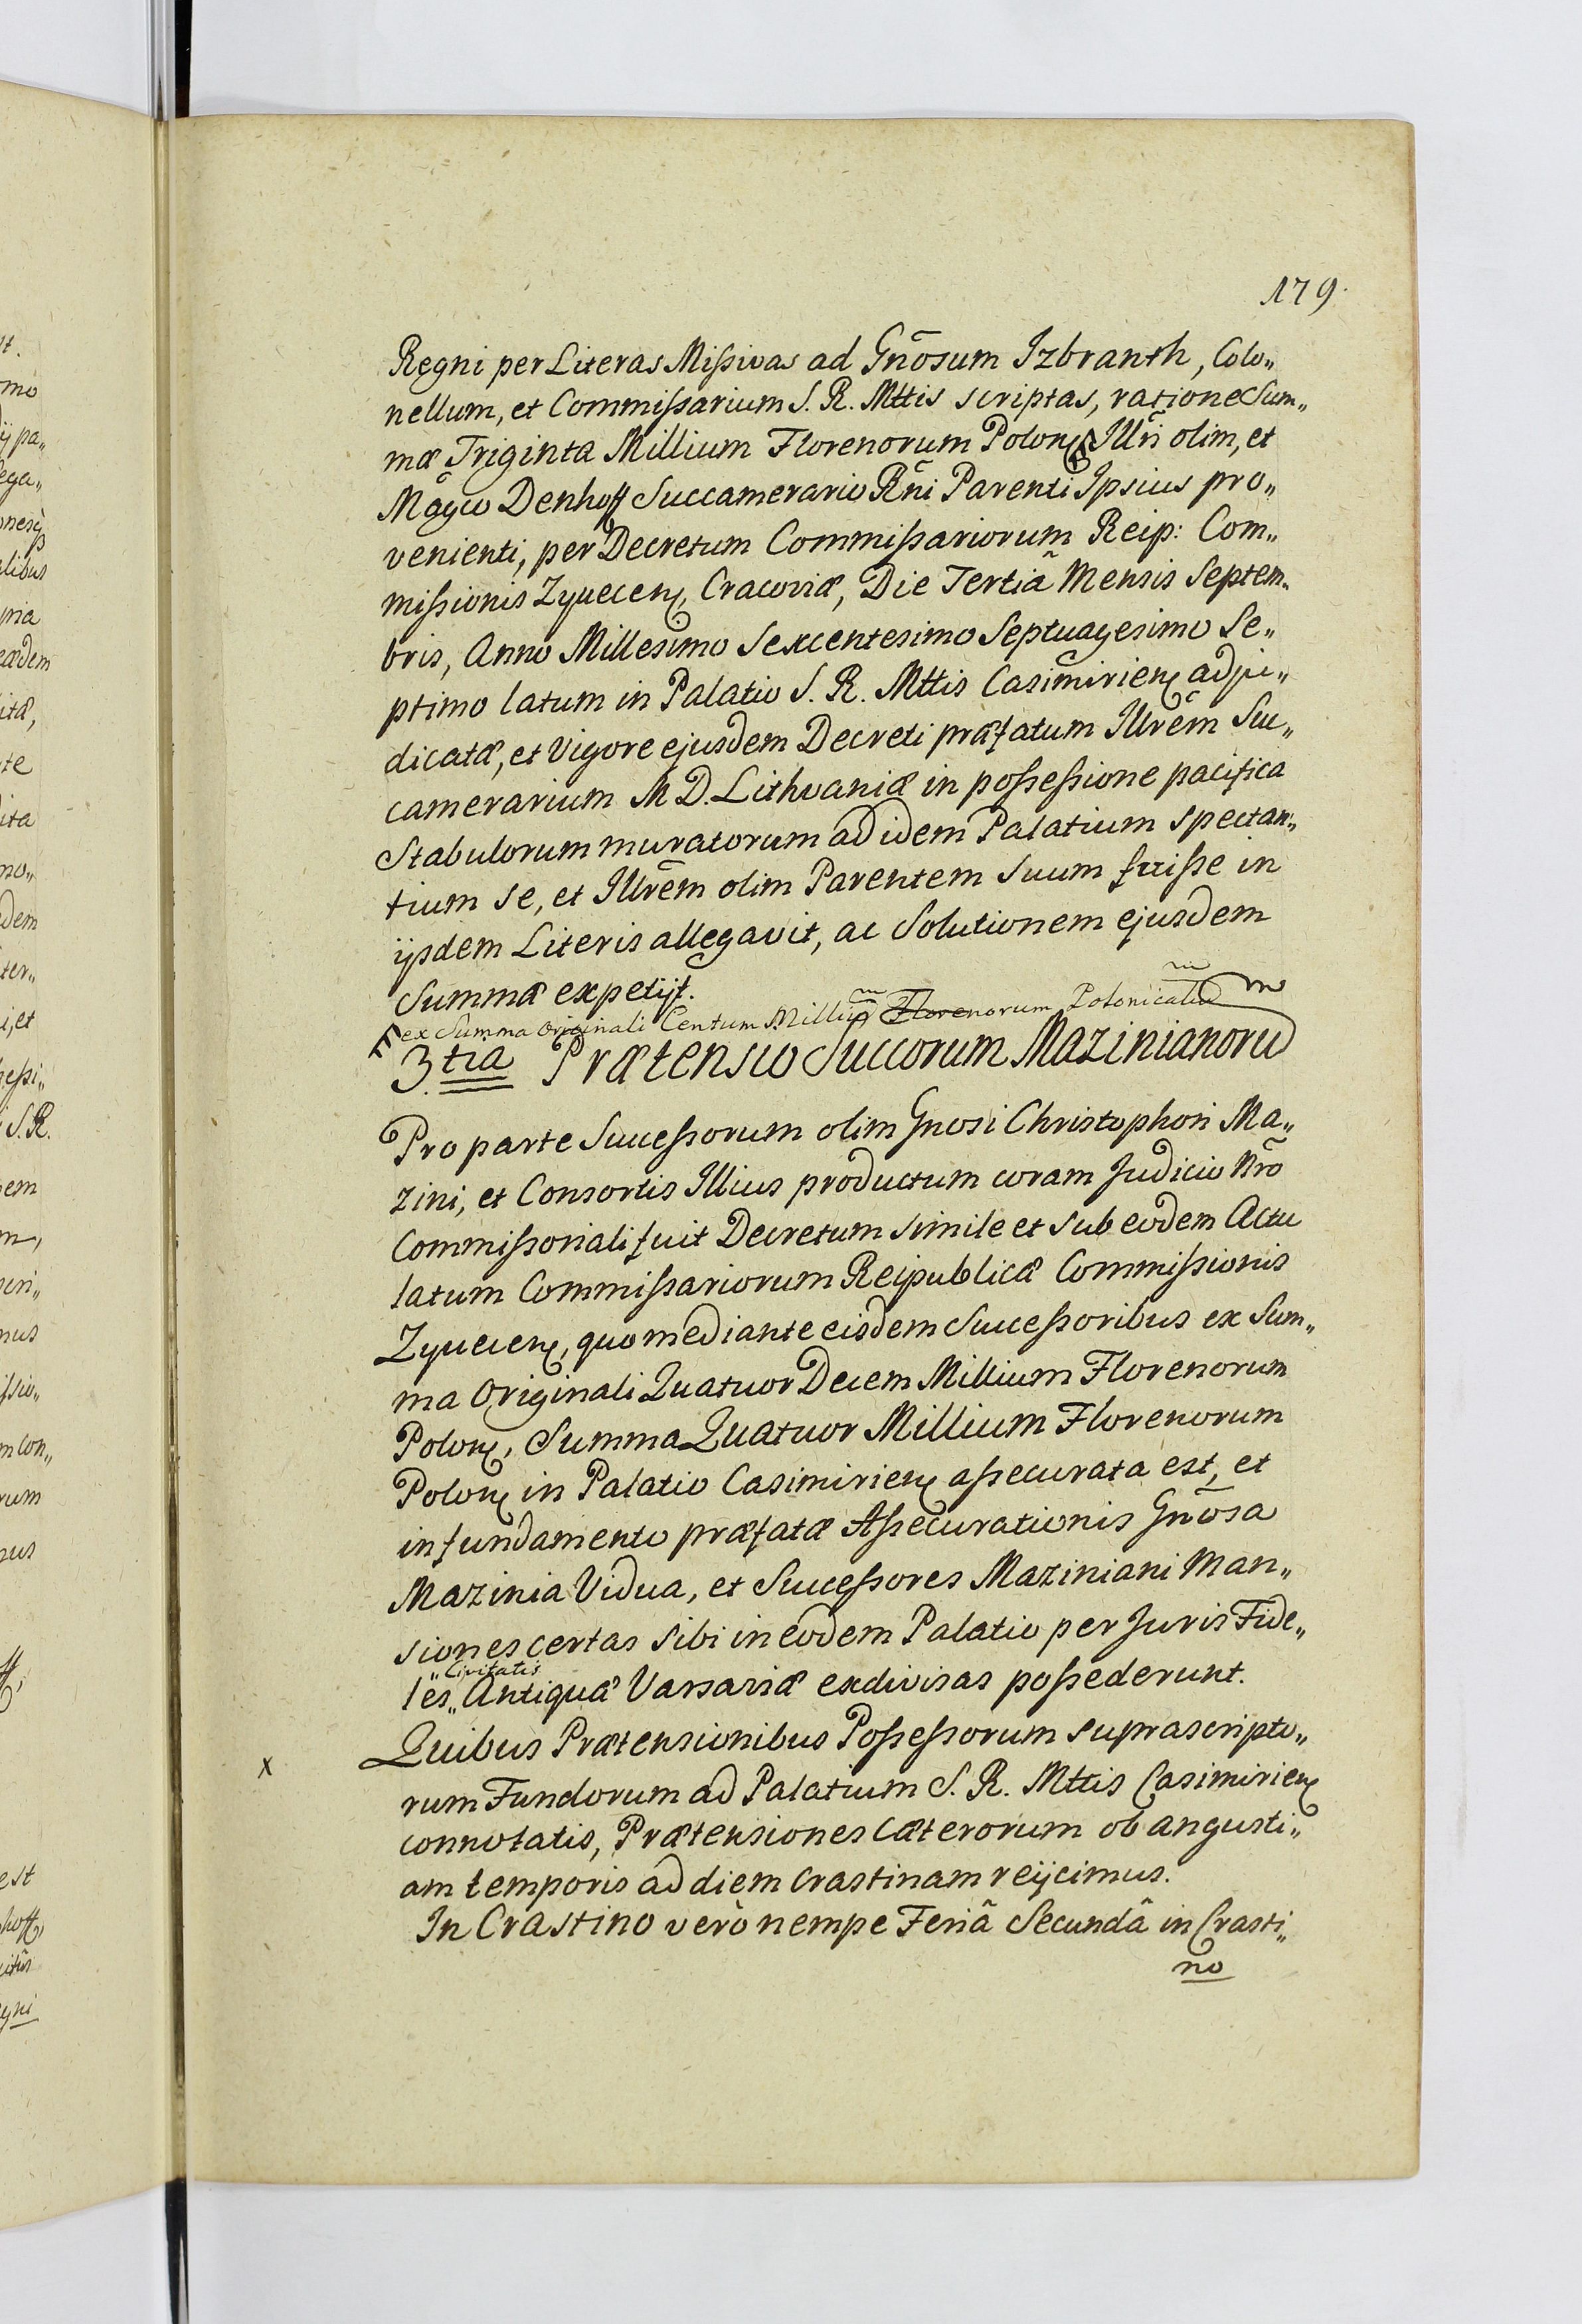 179.
Regni per Literas Missivas ad Gnõsum Izbranth, Colo„
nellum, et Commissarium S. R. Mttis scriptas, ratione Sum„
mæ Triginta Millium Florenorum Polon Illri olim, et
Magco Denhoff Succamerario Rñi Parenti Ipsius pro„
venienti, per Decretum Commissariorum Reip: Com„
missionis Zyvecen, Cracoviæ, Die Tertiâ Mensis Septem„
bris, Anno Millesimo Sexcentesimo Septuagesimo Se„
ptimo latum in Palatio S. R. Mttis Casimirien adju„
dicatæ, et Vigore ejusdem Decreti præfatum Illrẽm Suc„
camerarium M D. Lithvaniæ in possessione pacifica
Stabulorum muratorum ad idem Palatium spectan„
tium se, et Illrẽm olim Parentem Suum fuisse in
ijsdem Literis allegavit, ac Solutionem ejusdem
Summæ expetijt.
ex Summa Originali Centum Milliũ Florenorum Polonicaliũ
3.tia Prætensio Succorum Mazinianorũ
Pro parte Successorum olim Gnosi Christophori Ma„
zini, et Consortis Illius productum coram Judicio Nrõ
Commissoriali fuit Decretum simile et sub eodem Actu
latum Commissariorum Reipublicæ Commissionis
Zyvecen, quo mediante eisdem Successoribus ex Sum„
ma Originali Quatuor Decem Millium Florenorum
Polon, Summa Quatuor Millium Florenorum
Polon in Palatio Casimirien assecurata est, et
in fundamento præfatæ Assecurationis Gnõsa
Mazinia Vidua, et Successores Maziniani Man„
siones certas sibi in eodem Palatio per Juris Fide„
„Civitatis
les„ Antiquæ Varsaviæ exdivisas possederunt.
Quibus Prætensionibus Possessorum suprascripto„
x
rum Fundorum ad Palatium S. R. Mttis Casimirien
connotatis, Prætensiones Cæterorum ob angusti„
am temporis ad diem crastinam reijcimus.
In Crastino verò nempe Feriâ Secundâ in Crasti„
no